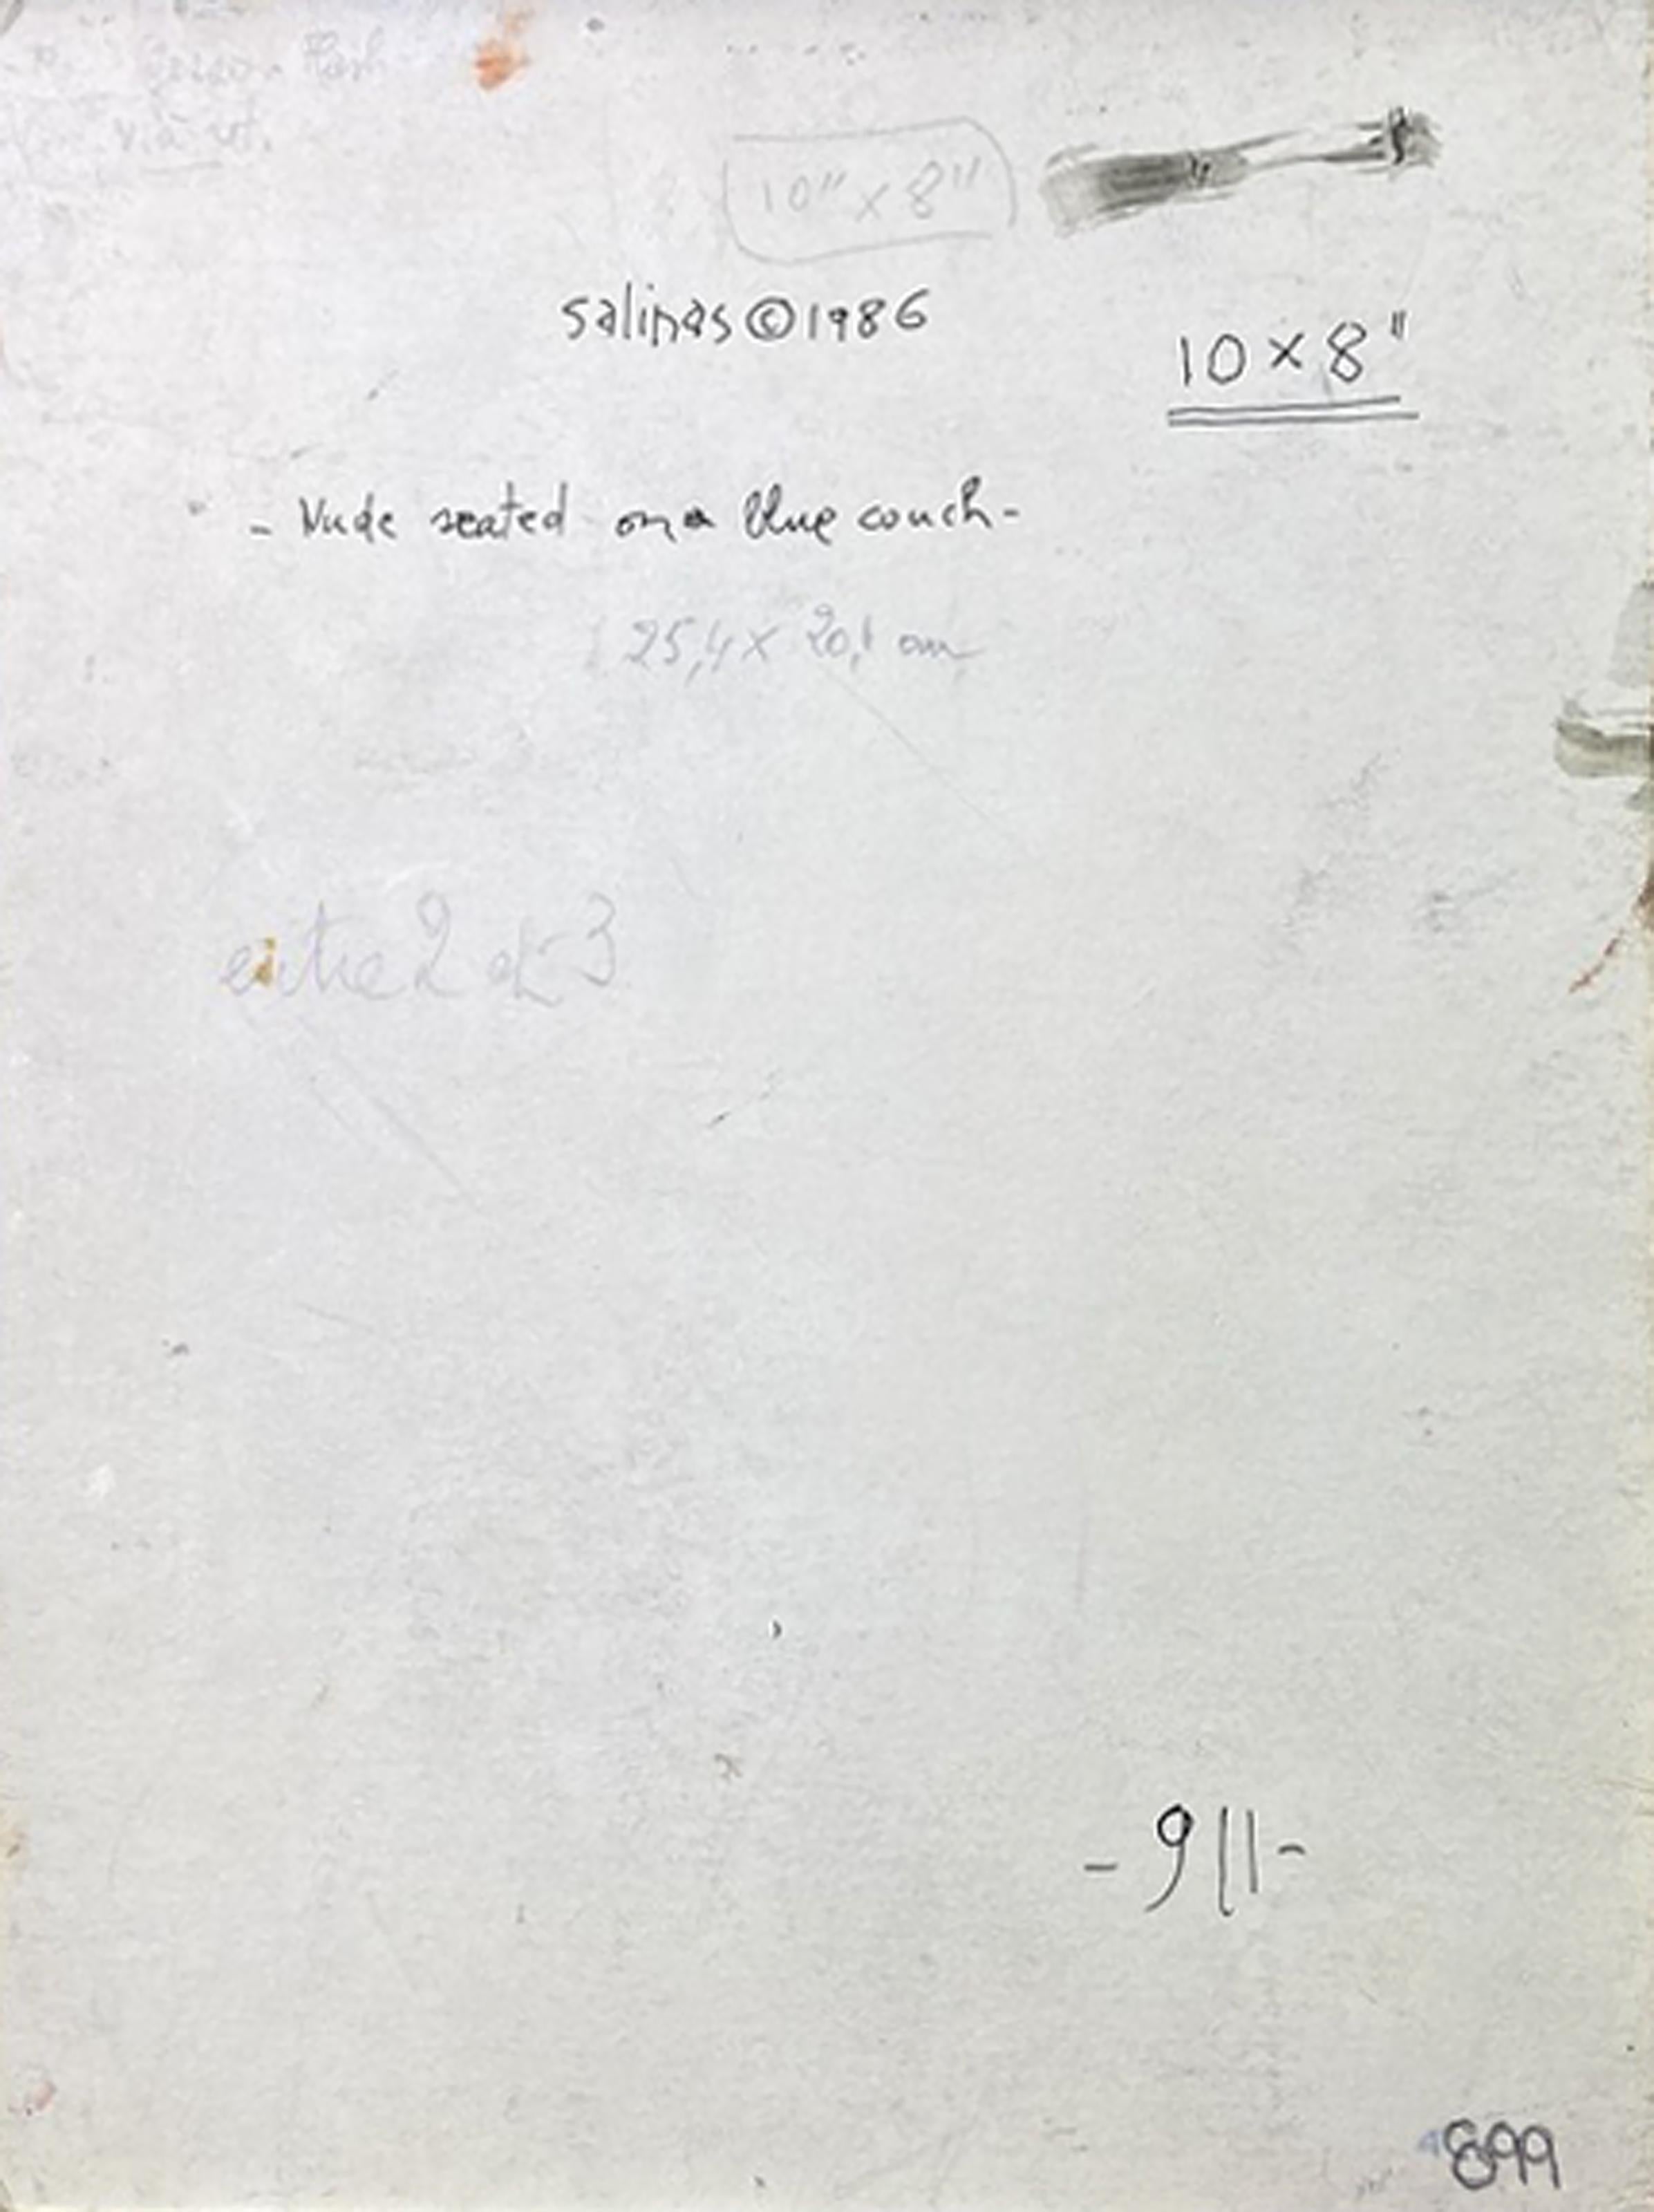 10" x 8"
Salinas © 1986
10 x 8"
- Nude seated on a blue couch -
25,4 x 20,1 cm
entre 2 et 3
- 911 -
899